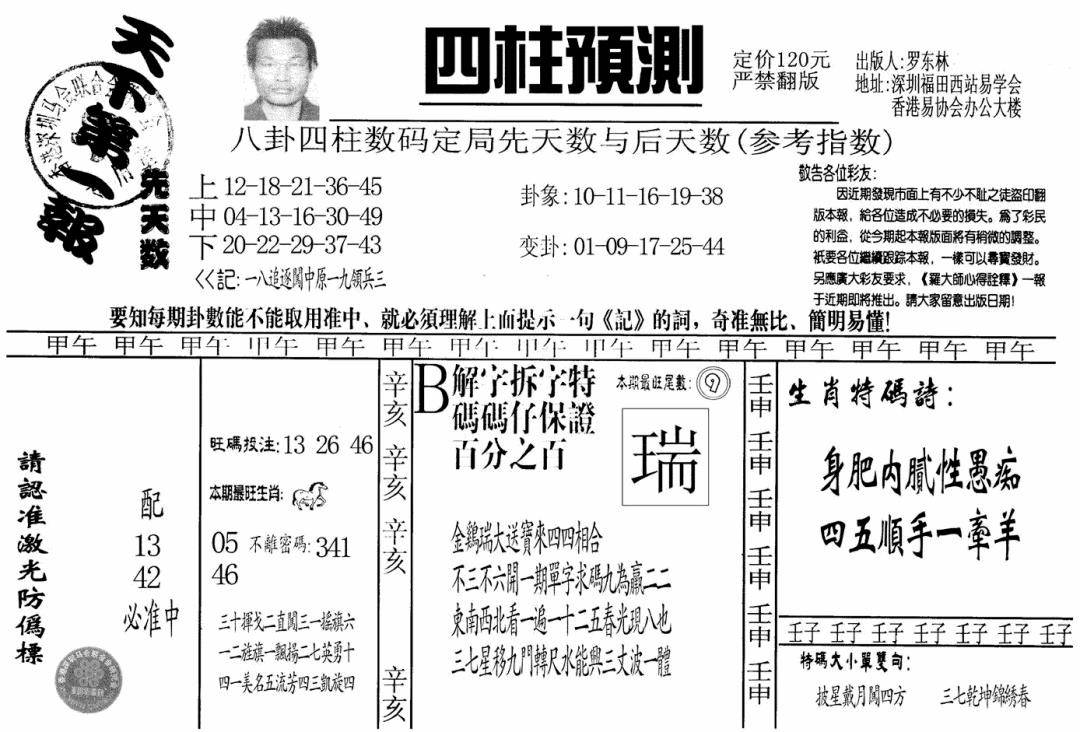 天下第一報
四柱預測
定价120元
严禁翻版
出版人:罗东林
地址:深圳福田西站易学会
香港易协会办公大楼
八卦四柱数码定局先天数与后天数(参考指数)
先天数
上 12-18-21-36-45
中 04-13-16-30-49
下 20-22-29-37-43
<<記:一八追逐闖中原一九領兵三
卦象:10-11-16-19-38
变卦:01-09-17-25-44
敬告各位彩友:
因近期發現市面上有不少不耻之徒盗印翻
版本報,給各位造成不必要的損失。爲了彩民
的利益,從今期起本報版面將有稍微的調整。
衹要各位繼續跟踪本報,一樣可以尋寶發財。
另應廣大彩友要求,《羅大師心得詮釋》一報
于近期即將推出。請大家留意出版日期!
要知每期卦數能不能取用准中、就必須理解上面提示一句《記》的詞,奇准無比、簡明易懂!
甲午 甲午 甲午 甲午 甲午 甲午 甲午 甲午 甲午 甲午 甲午 甲午 甲午 甲午 甲午
請認准激光防僞標
配
13
42
必准中
旺碼投注:13 26 46
本期最旺生肖:
05 不離密碼:341
46
三十揮戈二直闖三一摇旗六
一二旌旗一飄揚二七英勇十
四一美名五流芳四三凱旋四
辛亥
辛亥
辛亥
辛亥
B
解字拆字特
碼碼仔保證
百分之百
本期最旺尾數:9
瑞
金鷄瑞大送寶來四四相合
不三不六開一期單字求碼九為贏二二
東南西北看一遍一十二五春光現八也
三七星移九門轉尺水能興三丈波一體
壬申
壬申
壬申
壬申
壬申
壬申
生肖特碼詩:
身肥内膩性愚痴
四五順手一牽羊
壬子 壬子 壬子 壬子 壬子 壬子 壬子
特碼大小單雙句:
披星戴月闖四方 三七乾坤錦綉春